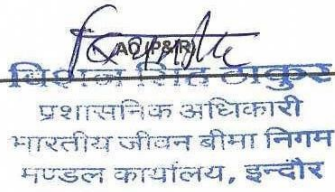 AO(P&R)
विशन सिंह ठाकुर
प्रशासनिक अधिकारी
भारतीय जीवन बीमा निगम
मण्डल कार्यालय, इन्दौर